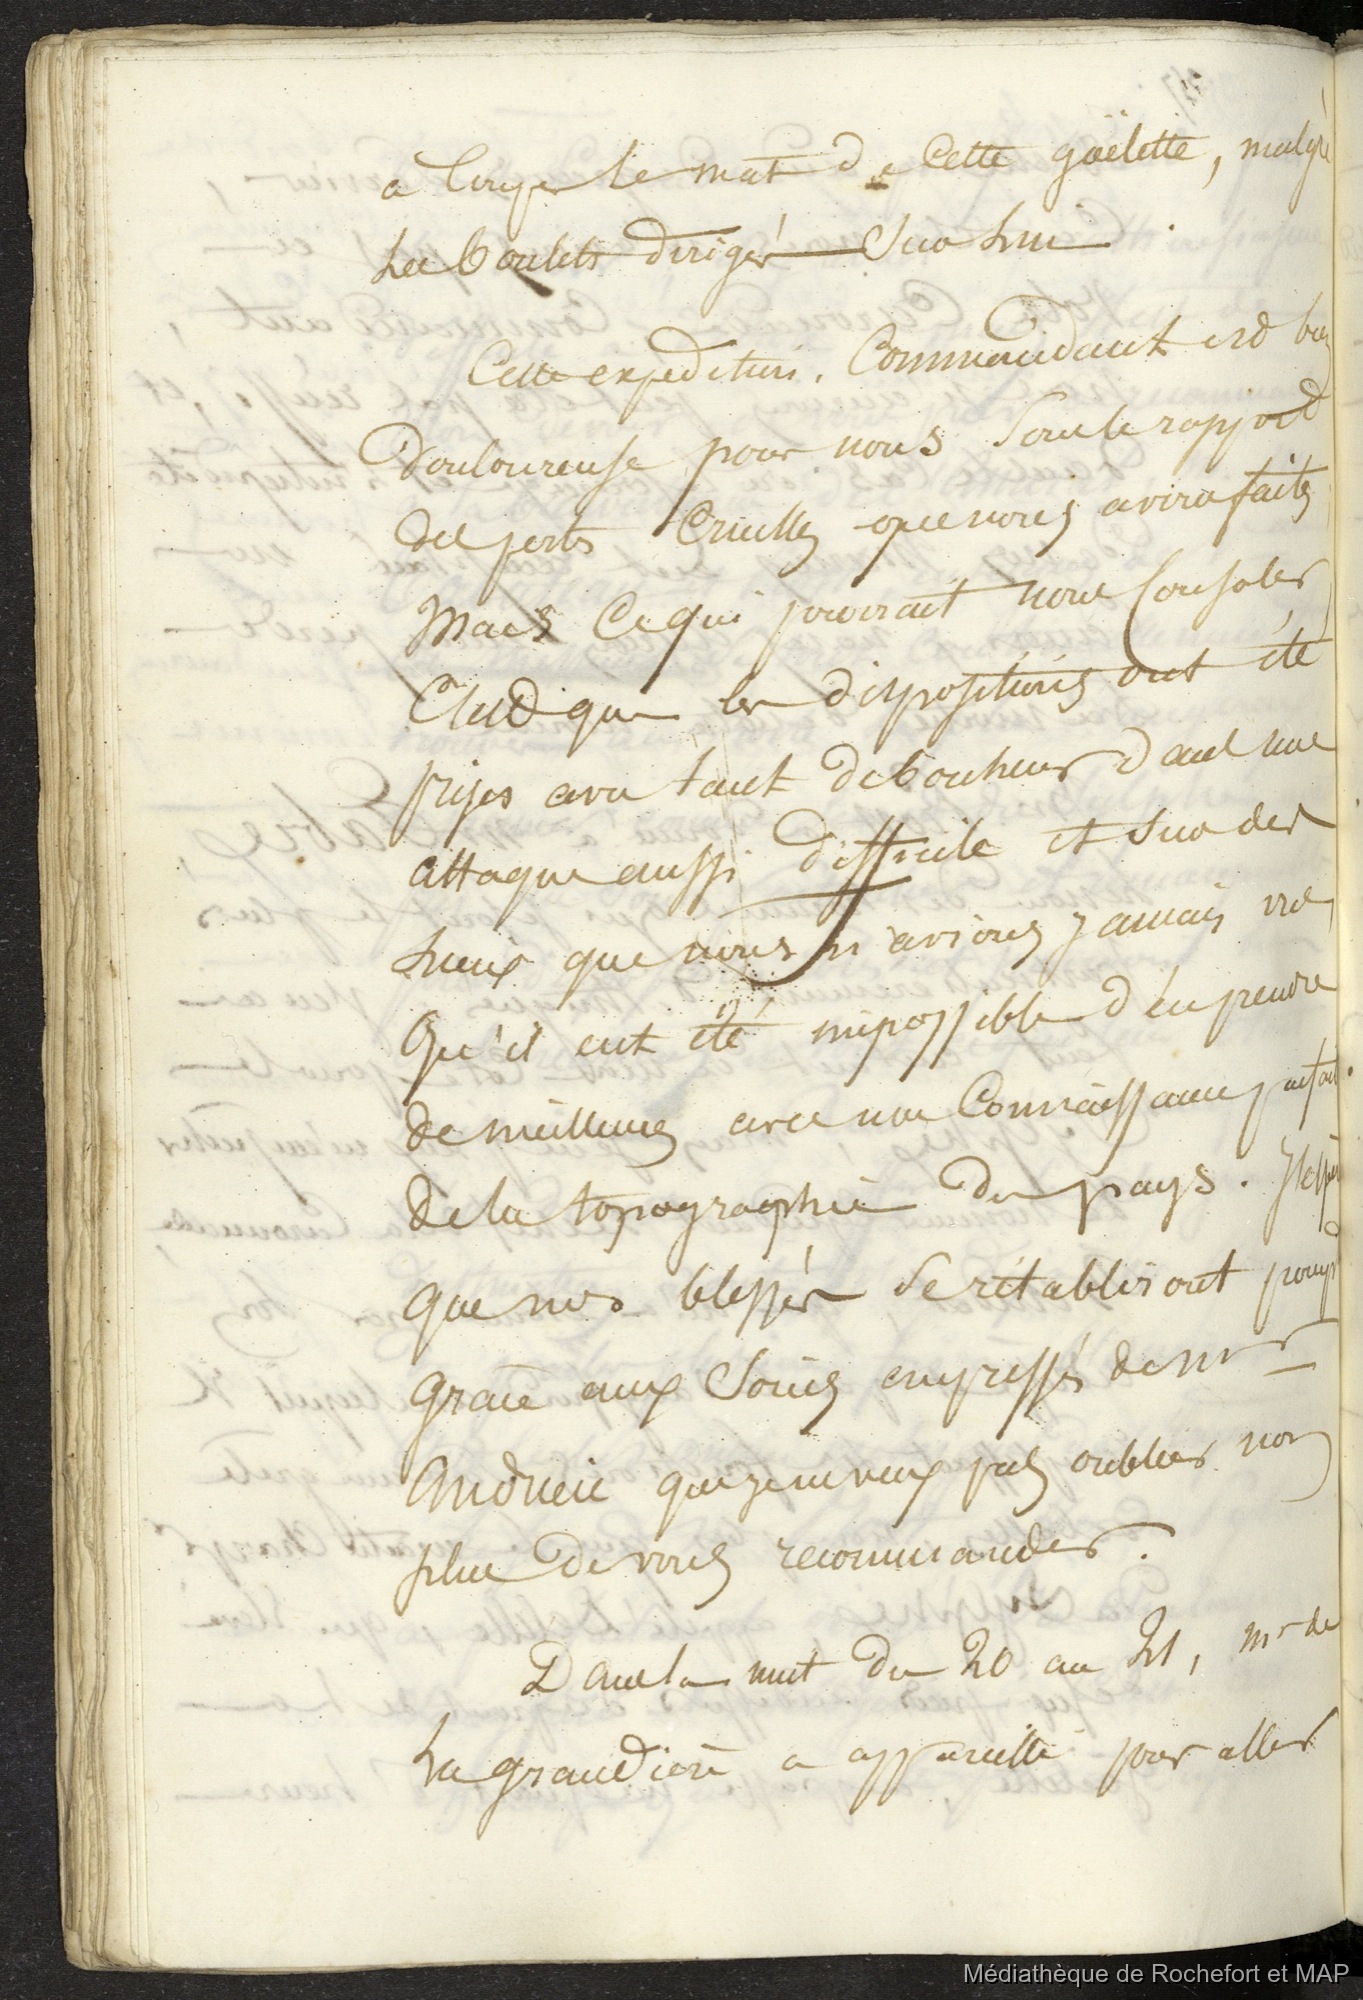 a couper le mat de cette goëlette, malgré
les boulets dirigés sur lui.
Cette expedition, Commandant est bien
douloureuse pour nous sous le rapport
des pertes cruelles que nous avons faites
Mais ce qui pourrait nous consoler
C'est que les dispositions ont été
prises avec tant de bonheur dans une
attaque aussi difficile et sur des
lieux que nous n'avions jamais vus
Qu'il eut été impossible d'en prendre
de meilleures avec une connaissance parfaite
de la topographie du pays. J'espère
que nos blessés se rétabliront
grace aux soins empressés de Mr
que je ne veux pas oublier non
plus de vous recommander.
Dans la nuit du 20 au 21, Mr de
La grandière a appareillé pour aller
Médiathèque de Rochefort et MAP